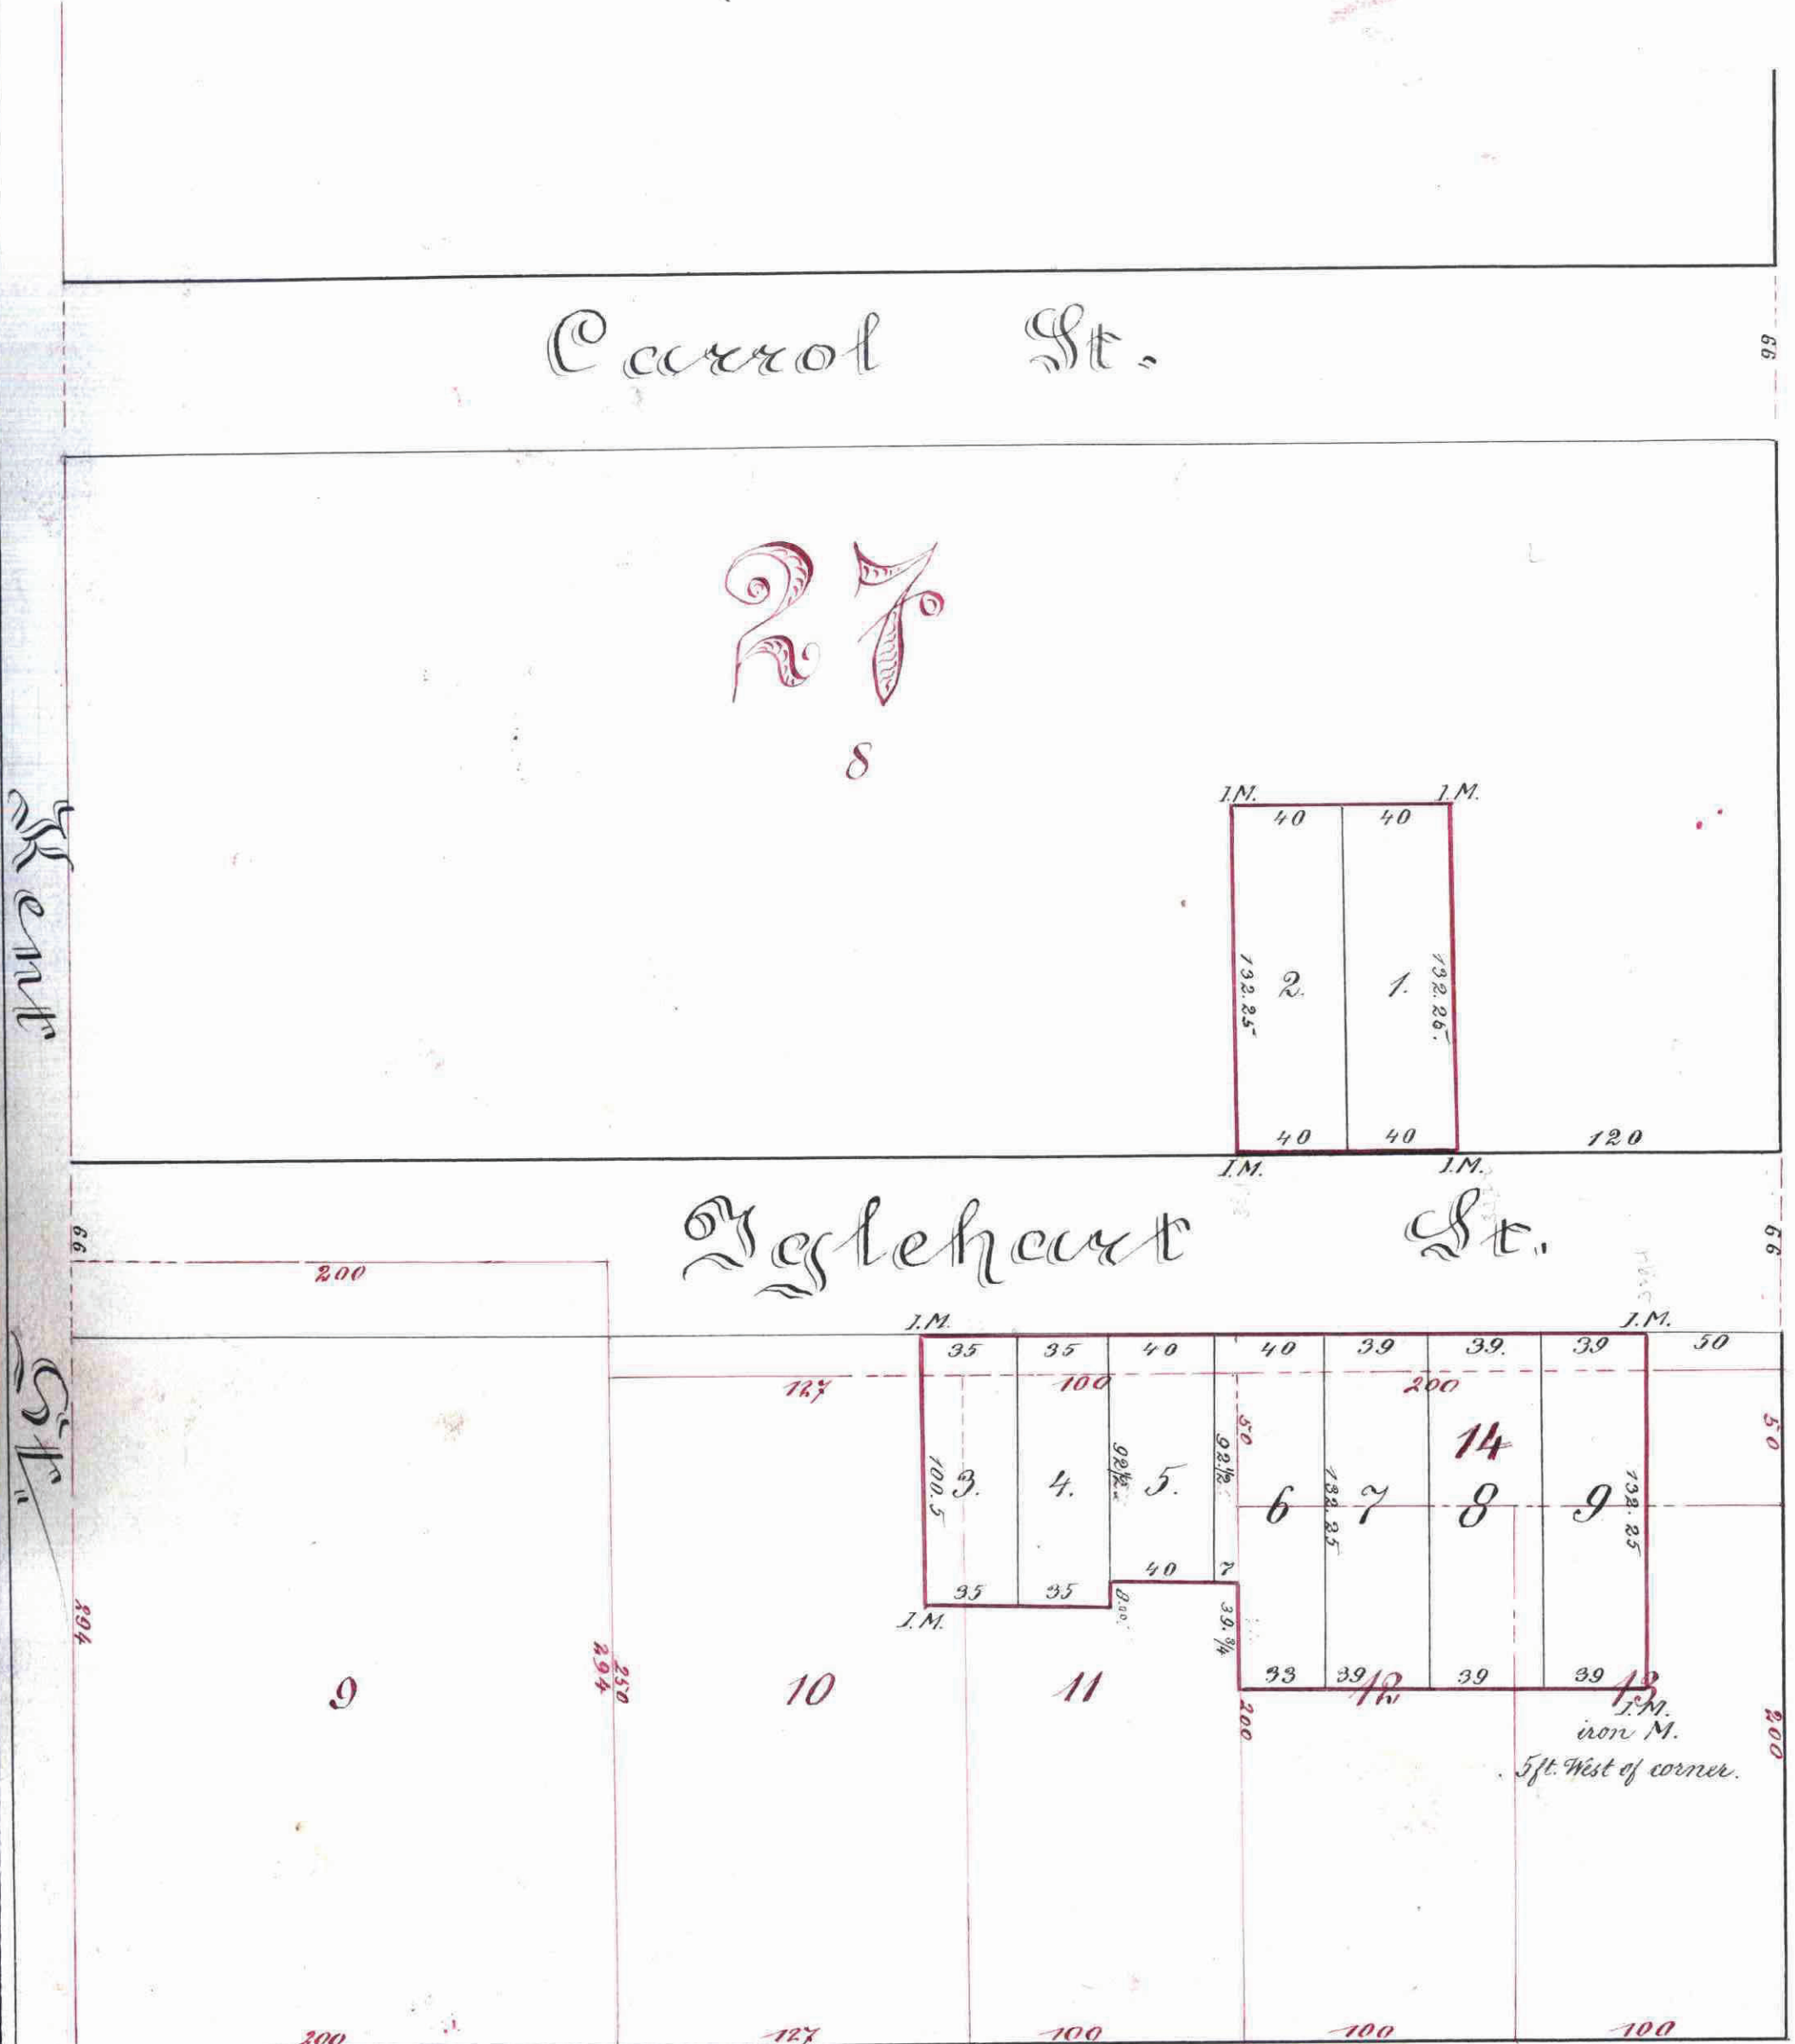 Carrol St.
66
27
8
Kent St.
I.M. I.M.
40 40
132.25 2. 1. 132.25.
40 40 120
I.M. I.M.
Iglehart St.
66 66
200
I.M. I.M.
35 35 40 40 39 39. 39 50
127 100 200
50 14 50
100.5 3. 4. 92 1/2 5. 92 1/2 6 132.25 7 8 9 132.25
40 7
35 35 8.00. 39.3/4
I.M.
33 39 39 39
294 294 250
9 10 11 12 13
I.M.
200 200
iron M.
5ft. West of corner.
200 127 100 100 100